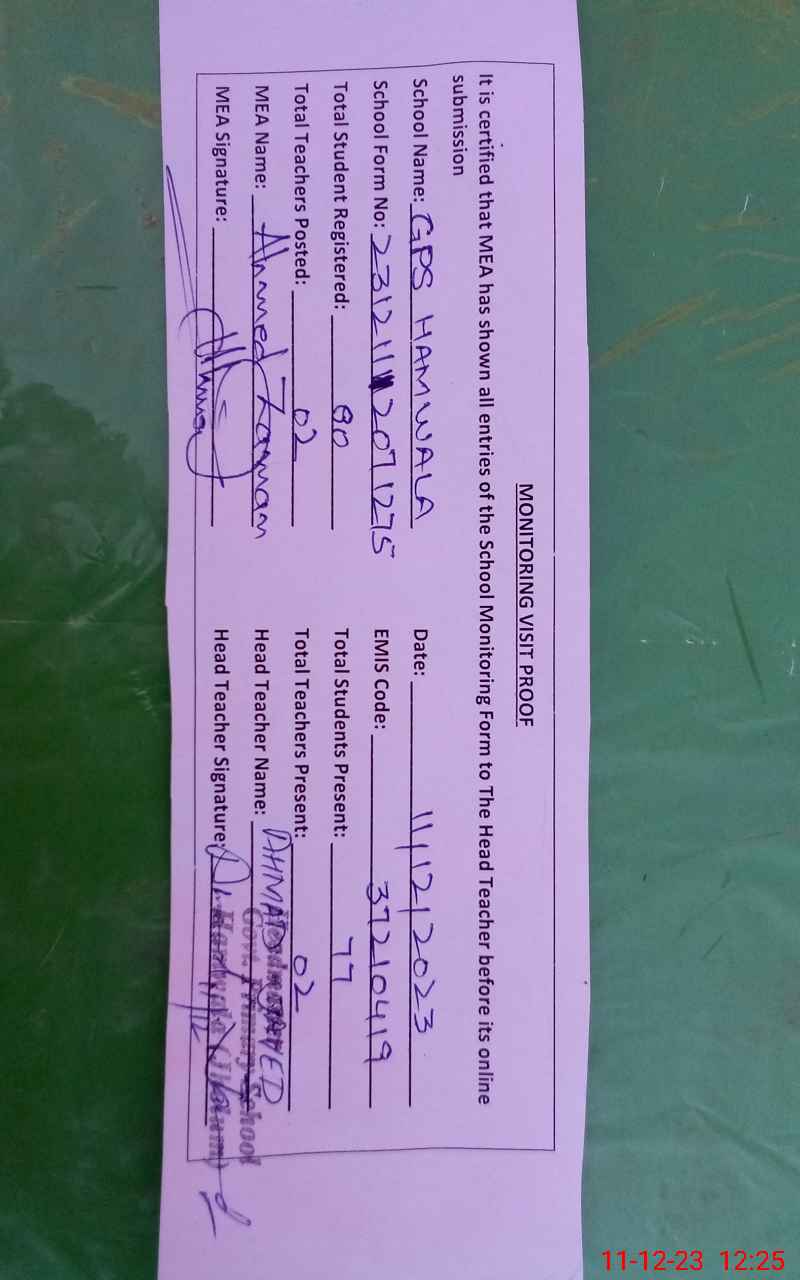 MONITORING VISIT PROOF
It is certified that MEA has shown all entries of the School Monitoring Form to The Head Teacher before its online
submission
School Name: GPS HAMWALA Date: 11/12/2023
School Form No: 23121112071275 EMIS Code: 37210419
Total Student Registered: 80 Total Students Present: 77
Total Teachers Posted: 02 Total Teachers Present: 02
MEA Name: Ahmed Zaman Head Teacher Name: AHMAD JAVED
MEA Signature: Head Teacher Signature:
Govt. Primary School
Hamwala (Jhelum)
11-12-23 12:25